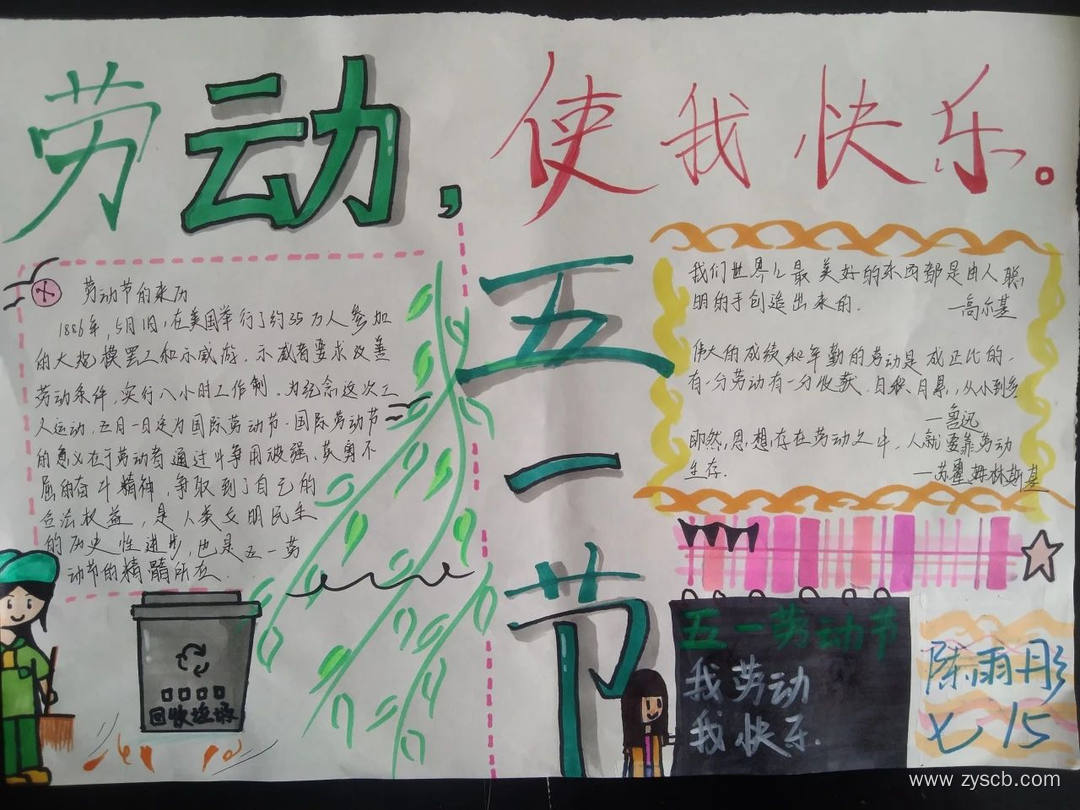 劳动,使我快乐。
五一节
劳动节的来历
1886年,5月1日,在美国举行了约35万人参加
的大规模罢工和示威游.示威者要求改善
劳动条件,实行八小时工作制.为纪念这次工
人运动,五月一日定为国际劳动节.国际劳动节
的意义在于劳动者通过斗争用顽强,英勇不
屈的奋斗精神,争取到了自己的
合法权益,是人类文明民主
的历史性进步,也是五一劳
动节的精髓所在.
回收垃圾
我们世界上最美好的东西都是由人聪
明的手创造出来的.
—高尔基
伟大的成绩和辛勤的劳动是成正比的,
有一分劳动有一分收获.日积月累,从小到多
—鲁迅
即然,思想存在劳动之中,人就要靠劳动
生存.
—苏霍姆林斯基
五一劳动节
我劳动
我快乐.
陈雨彤
七.15
www.zyscb.com